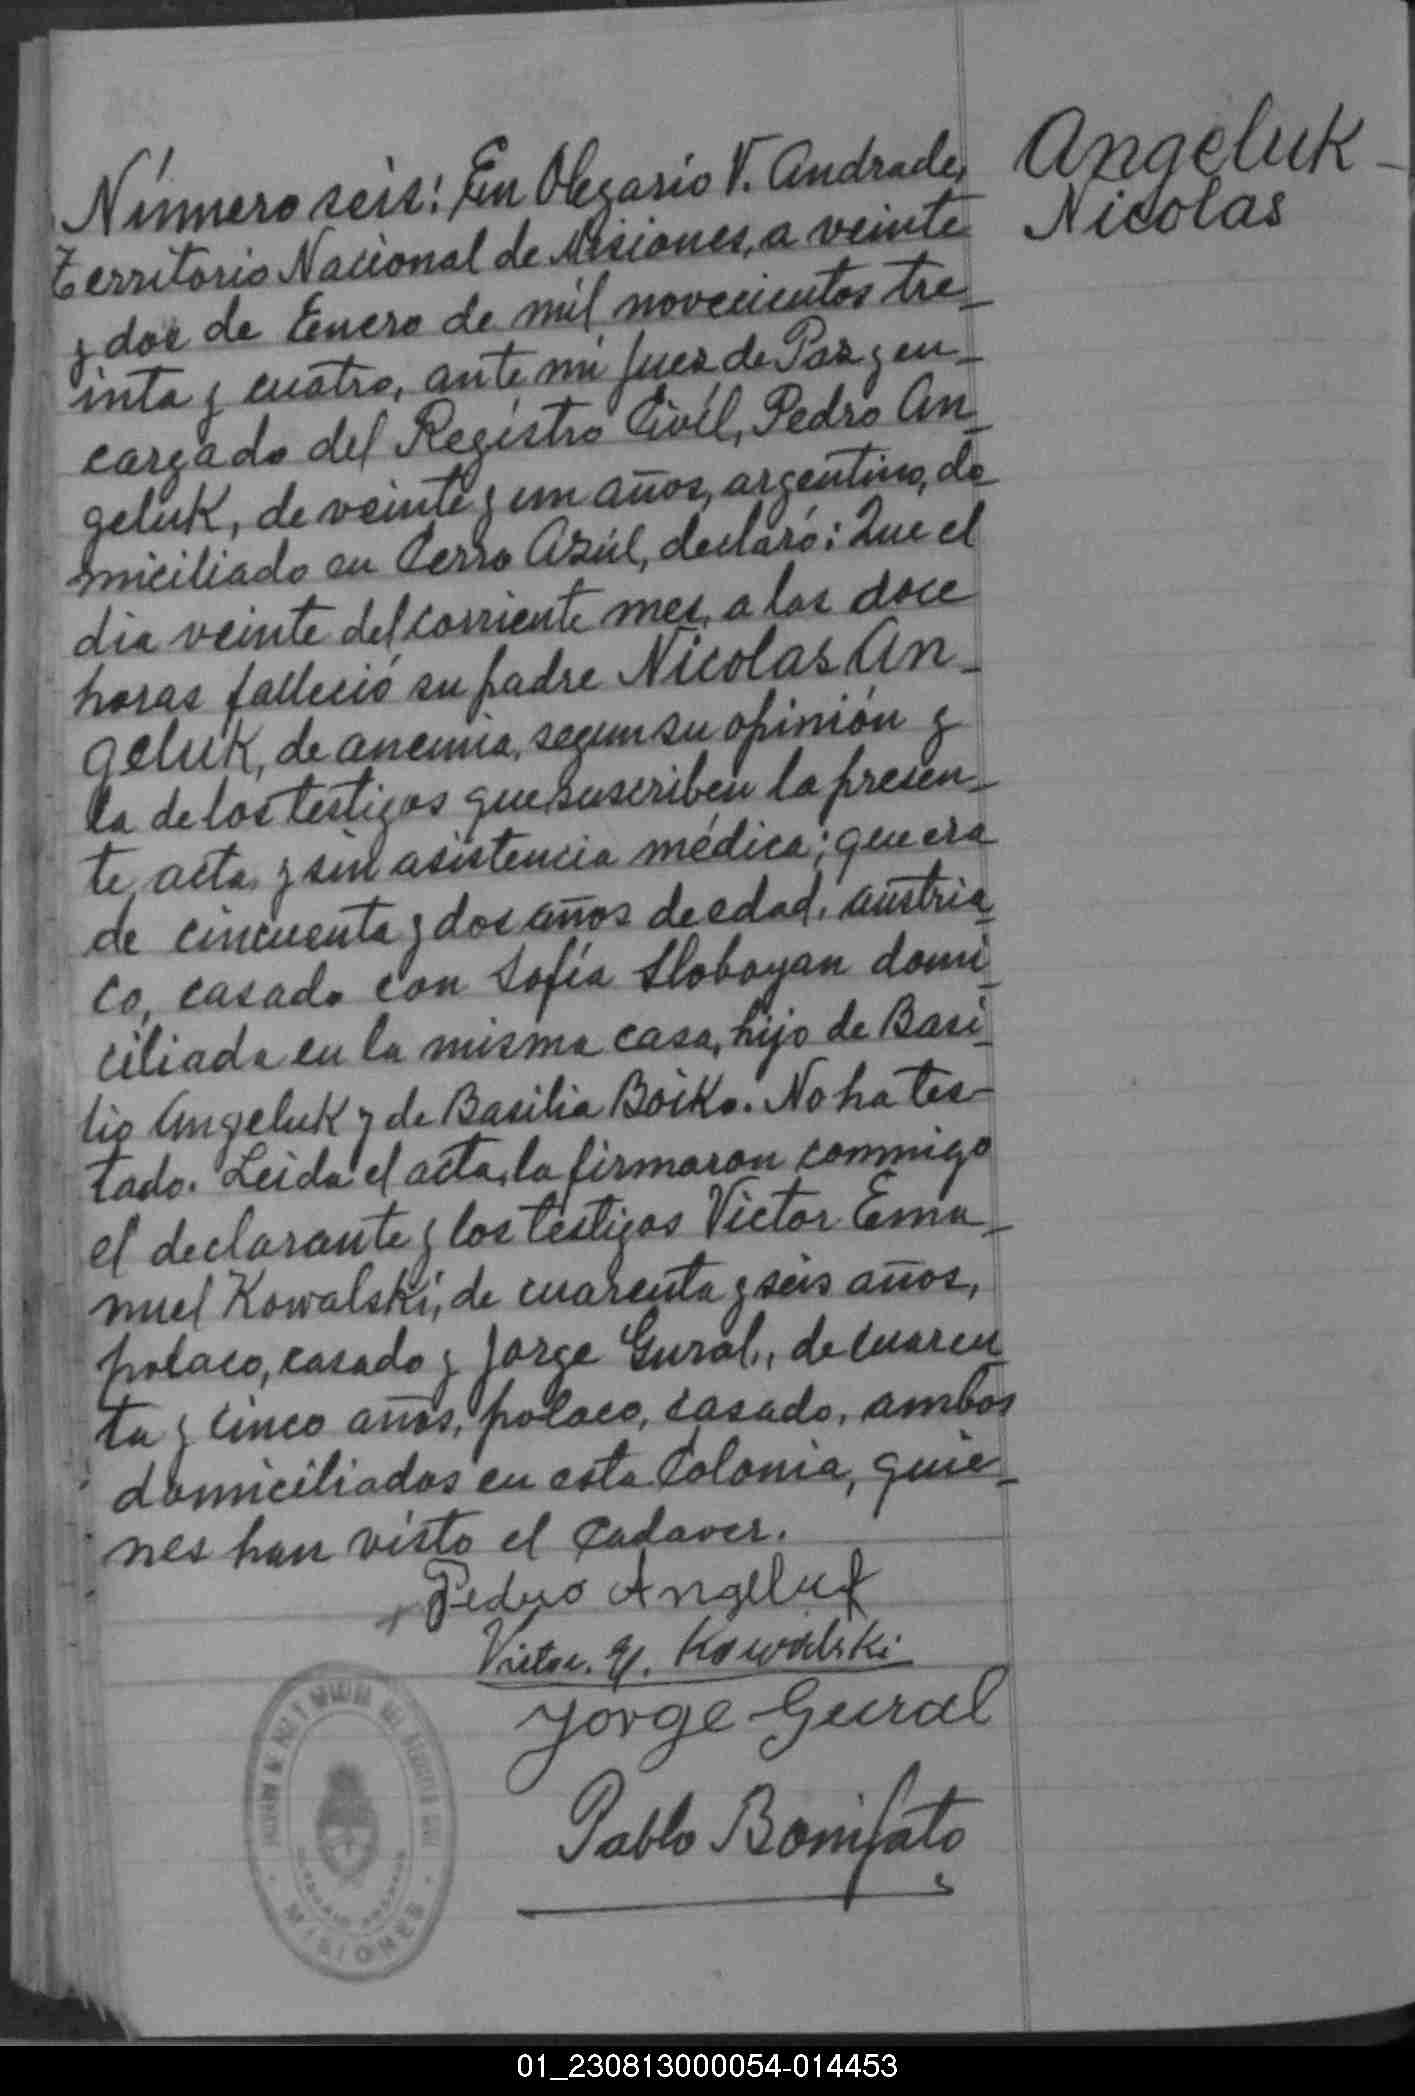 Angeluk
Nicolas
Número seis: En Olegario V. Andrade,
Territorio Nacional de Misiones, a veinte
y dos de Enero de mil novecientos tre_
inta y cuatro, ante mi Juez de Paz y en_
cargado del Registro Civil, Pedro An_
geluk, de veinte y un años, argentino, do_
miciliado en Cerro Azúl, declaró: Que el
dia veinte del corriente mes, a las doce
horas falleció su padre Nicolas An_
geluk, de anemia, segun su opinión y
la de los testigos que suscriben la presen_
te acta y sin asistencia médica; que era
de cincuenta y dos años de edad, austria_
co, casado con Sofía Sloboyan domi_
ciliada en la misma casa, hijo de Basi_
lio Angeluk y de Basilia Boiko. No ha tes_
tado. Leida el acta, la firmaron conmigo
el declarante y los testigos Victor Ema_
nuel Kowalski, de cuarenta y seis años,
polaco, casado y Jorge Gural, de cuaren_
ta y cinco años, polaco, casado, ambos
domiciliados en esta Colonia, quie_
nes han visto el cadaver.
Pedro Angeluk
Victor. E. Kowalski
Jorge Gural
Pablo Bonifato
MISIONES
01_230813000054-014453